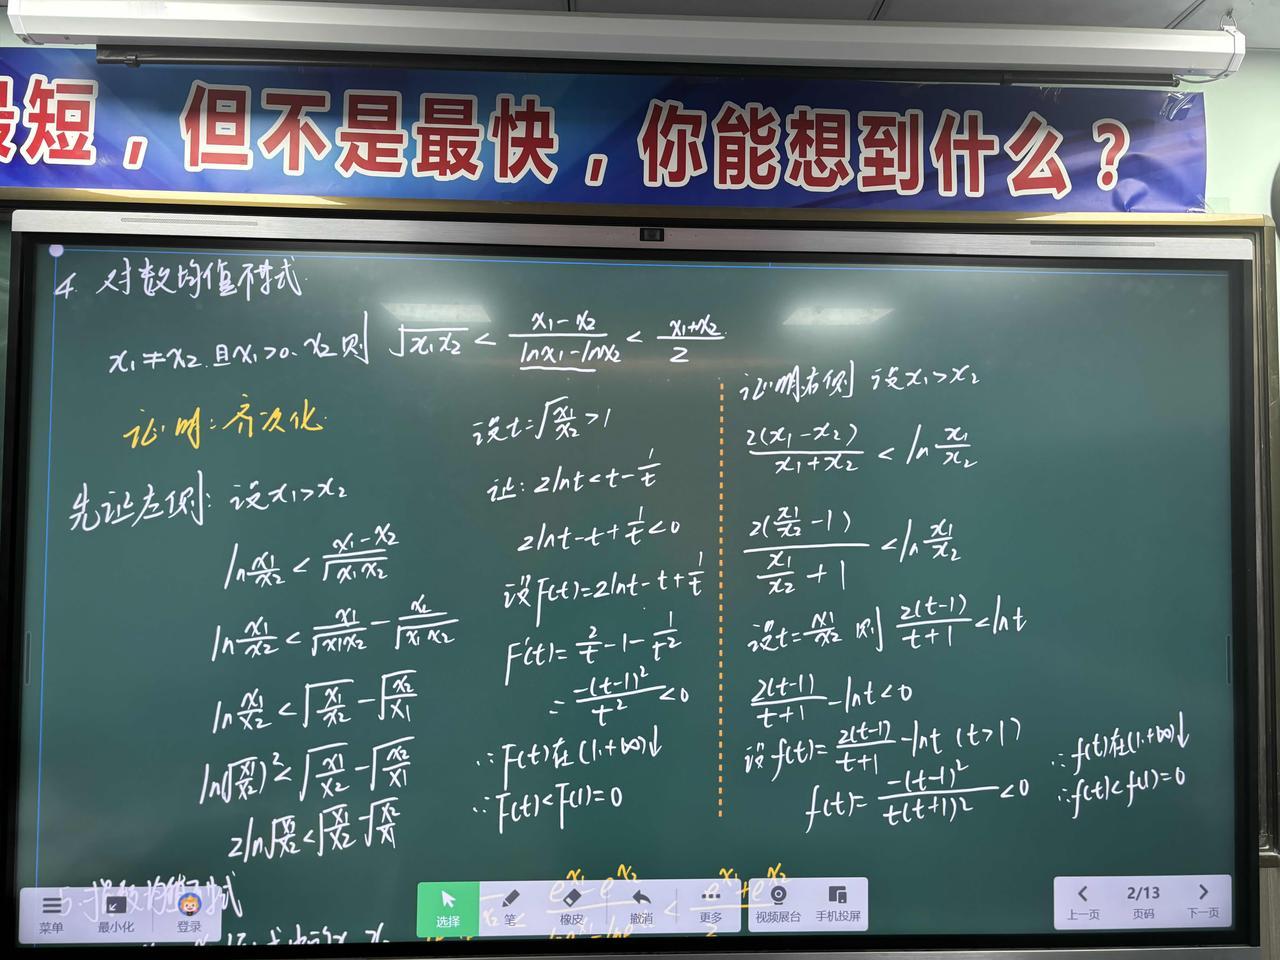 最短，但不是最快，你能想到什么？
4 对数均值不等式
x₁≠x₂.且x₁>0、x₂则 √(x₁x₂) < (x₁-x₂)/(lnx₁-lnx₂) < (x₁+x₂)/2
证明:齐次化
先证左侧: 设x₁>x₂
ln(x₁/x₂) < (x₁-x₂)/√(x₁x₂)
ln(x₁/x₂) < x₁/√(x₁x₂) - x₂/√(x₁x₂)
ln(x₁/x₂) < √(x₁/x₂) - √(x₂/x₁)
ln(√(x₁/x₂))² < √(x₁/x₂) - √(x₂/x₁)
2ln√(x₁/x₂) < √(x₁/x₂) - √(x₂/x₁)
设t=√(x₁/x₂)>1
证:2lnt<t-1/t
2lnt-t+1/t<0
设F(t)=2lnt-t+1/t
F'(t)=2/t-1-1/t²
=-(t-1)²/t²<0
∴F(t)在(1,+∞)↓
∴F(t)<F(1)=0
证明右侧 设x₁>x₂
2(x₁-x₂)/(x₁+x₂) < ln(x₁/x₂)
2(x₁/x₂-1)/(x₁/x₂+1) < ln(x₁/x₂)
设t=x₁/x₂ 则 2(t-1)/(t+1)<lnt
2(t-1)/(t+1)-lnt<0
设f(t)=2(t-1)/(t+1)-lnt (t>1)
f'(t)=-(t-1)²/(t(t+1)²)<0
∴f(t)在(1,+∞)↓
∴f(t)<f(1)=0
菜单
最小化
登录
选择
笔
橡皮
撤消
更多
视频展台
手机投屏
上一页
2/13
页码
下一页